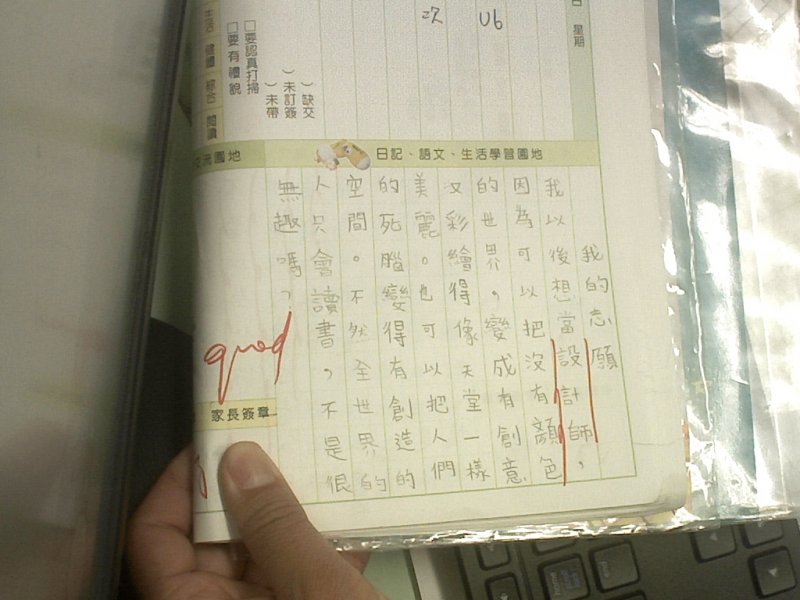 星期
U6
生活 健體 綜合 閱讀
□要認真打掃
□要有禮貌
)缺交
)未訂簽
)未帶
日記、語文、生活學習園地
流園地
我的志願
我以後想當設計師,
因為可以把沒有顏色
的世界,變成有創意
又彩繪得像天堂一樣
美麗。也可以把人們
的死腦變得有創造的
空間。不然全世界的
人只會讀書,不是很
無趣嗎?
good
家長簽章